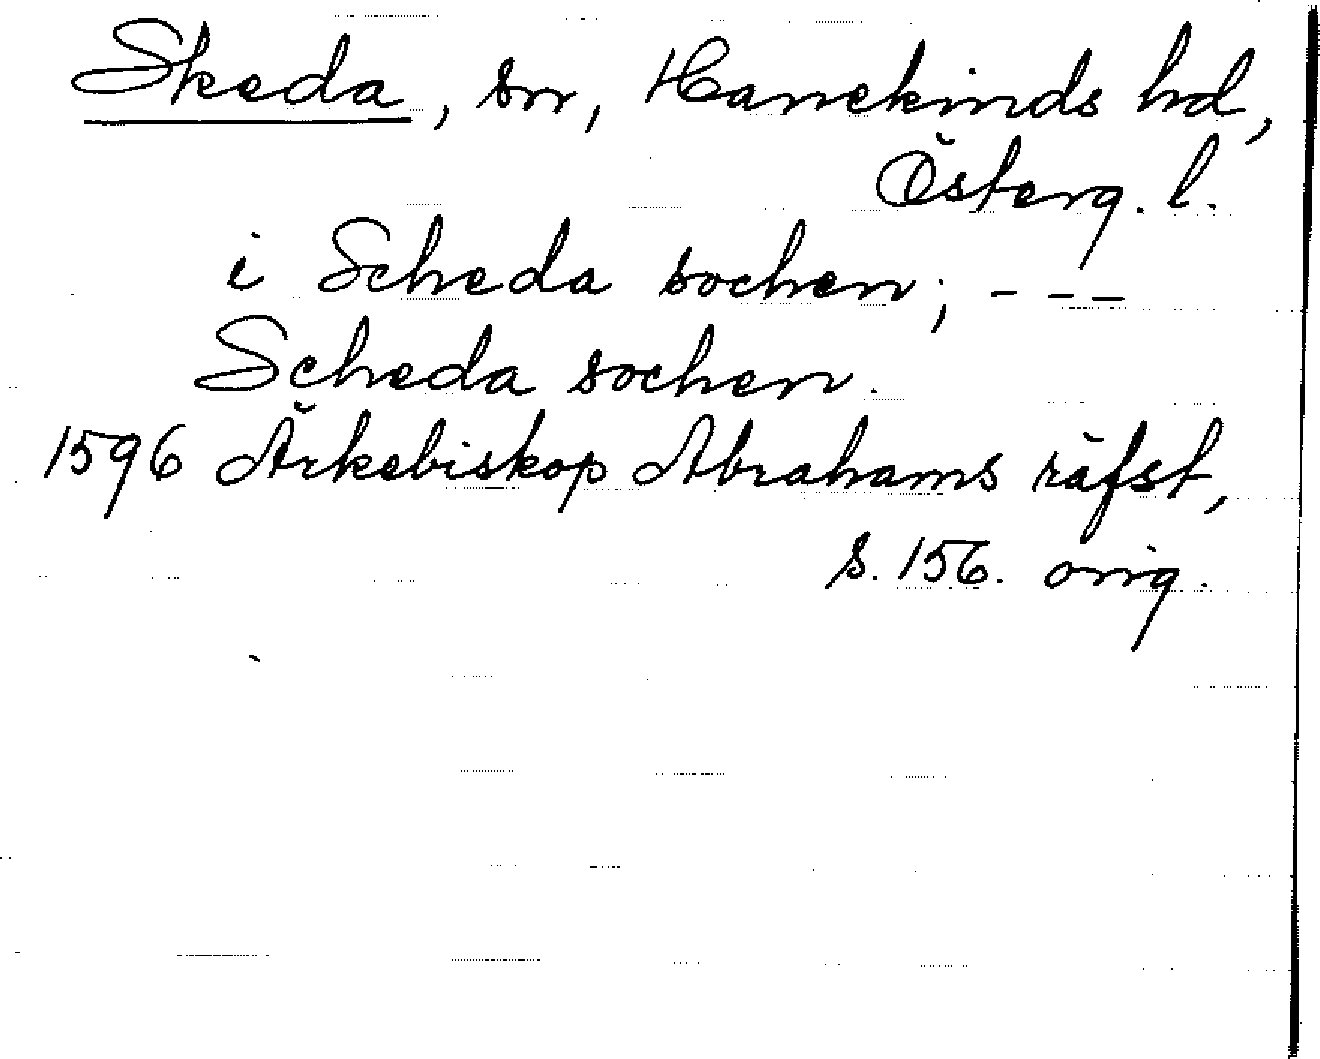 Skeda, sn, Hanekinds hd,
Österg. l.
i Scheda sochen; - - -
Scheda sochen.
1596 Ärkebiskop Abrahams räfst,
s. 156. orig.